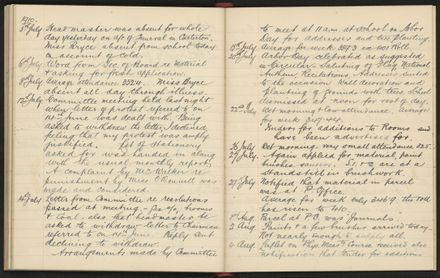 1910
5th July Headmaster was absent for whole
day yesterday on a/c of Funeral in Carterton
Miss Bryce absent from school today
on account of cold.
6th July Word from Sec. of Board re Material
& asking for fresh application.
8th July Average attendance Miss Bryce
absent all day through illness.
12th July Committee meeting held last night
when letter of protest referred to on
14th June was dealt with. Being
asked to withdraw the letter I declined
feeling that my protest was amply
justified. List of stationery
asked for was handed in along
with the usual monthly report.
A complaint by Mr Walker re
punishment by Miss O'Connell was
made and considered.
16th July Letter from Committee re resolutions
passed at meeting - For 4/- rooms
& Coal. Also that headmaster be
asked to withdraw letter to Chairman
referred to on 14th June. Reply sent
declining to withdraw.
Arrangements made by Committee
to meet at 11 a.m. at school on Arbor
Day for addresses and tree planting.
15th July Average for week 389.3 on 401 Roll.
20th July Arbor Day celebrated as suggested
in Circular. Saluting of Flag. National
Anthem. Recitations. Addresses suited
to the occasion. Weed decorations and
planting of grounds with trees. School
dismissed at noon for rest of day.
22nd July Wet morning & low attendance. Average
for week 347.44.
Tenders for additions to Rooms
have been advertised for
26 July Wet morning. very small attendance 225.
27 July. Again applied for material, paint
brushes survey. S.6. & 5.2 are at a
standstill in brushwork.
29 July Notified that material in parcel
was at P. Office.
Average for week only 346.9 the roll
has risen to 410
1st Aug Parcel at P.O. was "Journals"
2 Aug Paints & a few brushes arrived today.
Not nearly enough to supply all.
4 Aug Leaflet on Phys. Meas.t Course received also
notification that tender for additions